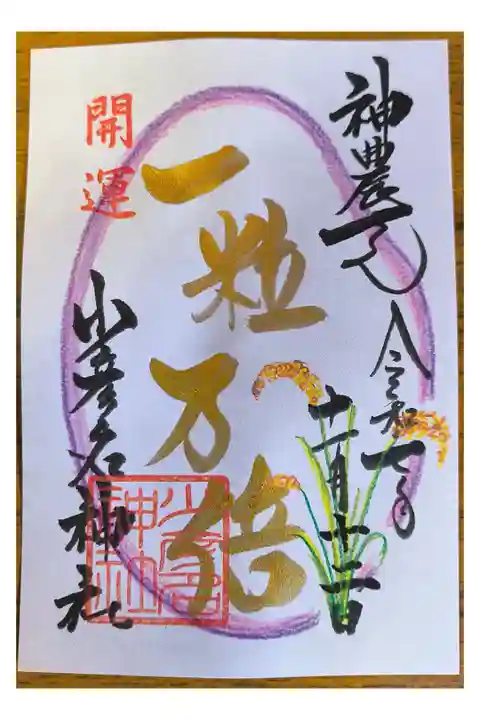 神農さん
令和七年
十一月十二日
一粒万倍
開運
少彦名神社
少彦名
神社